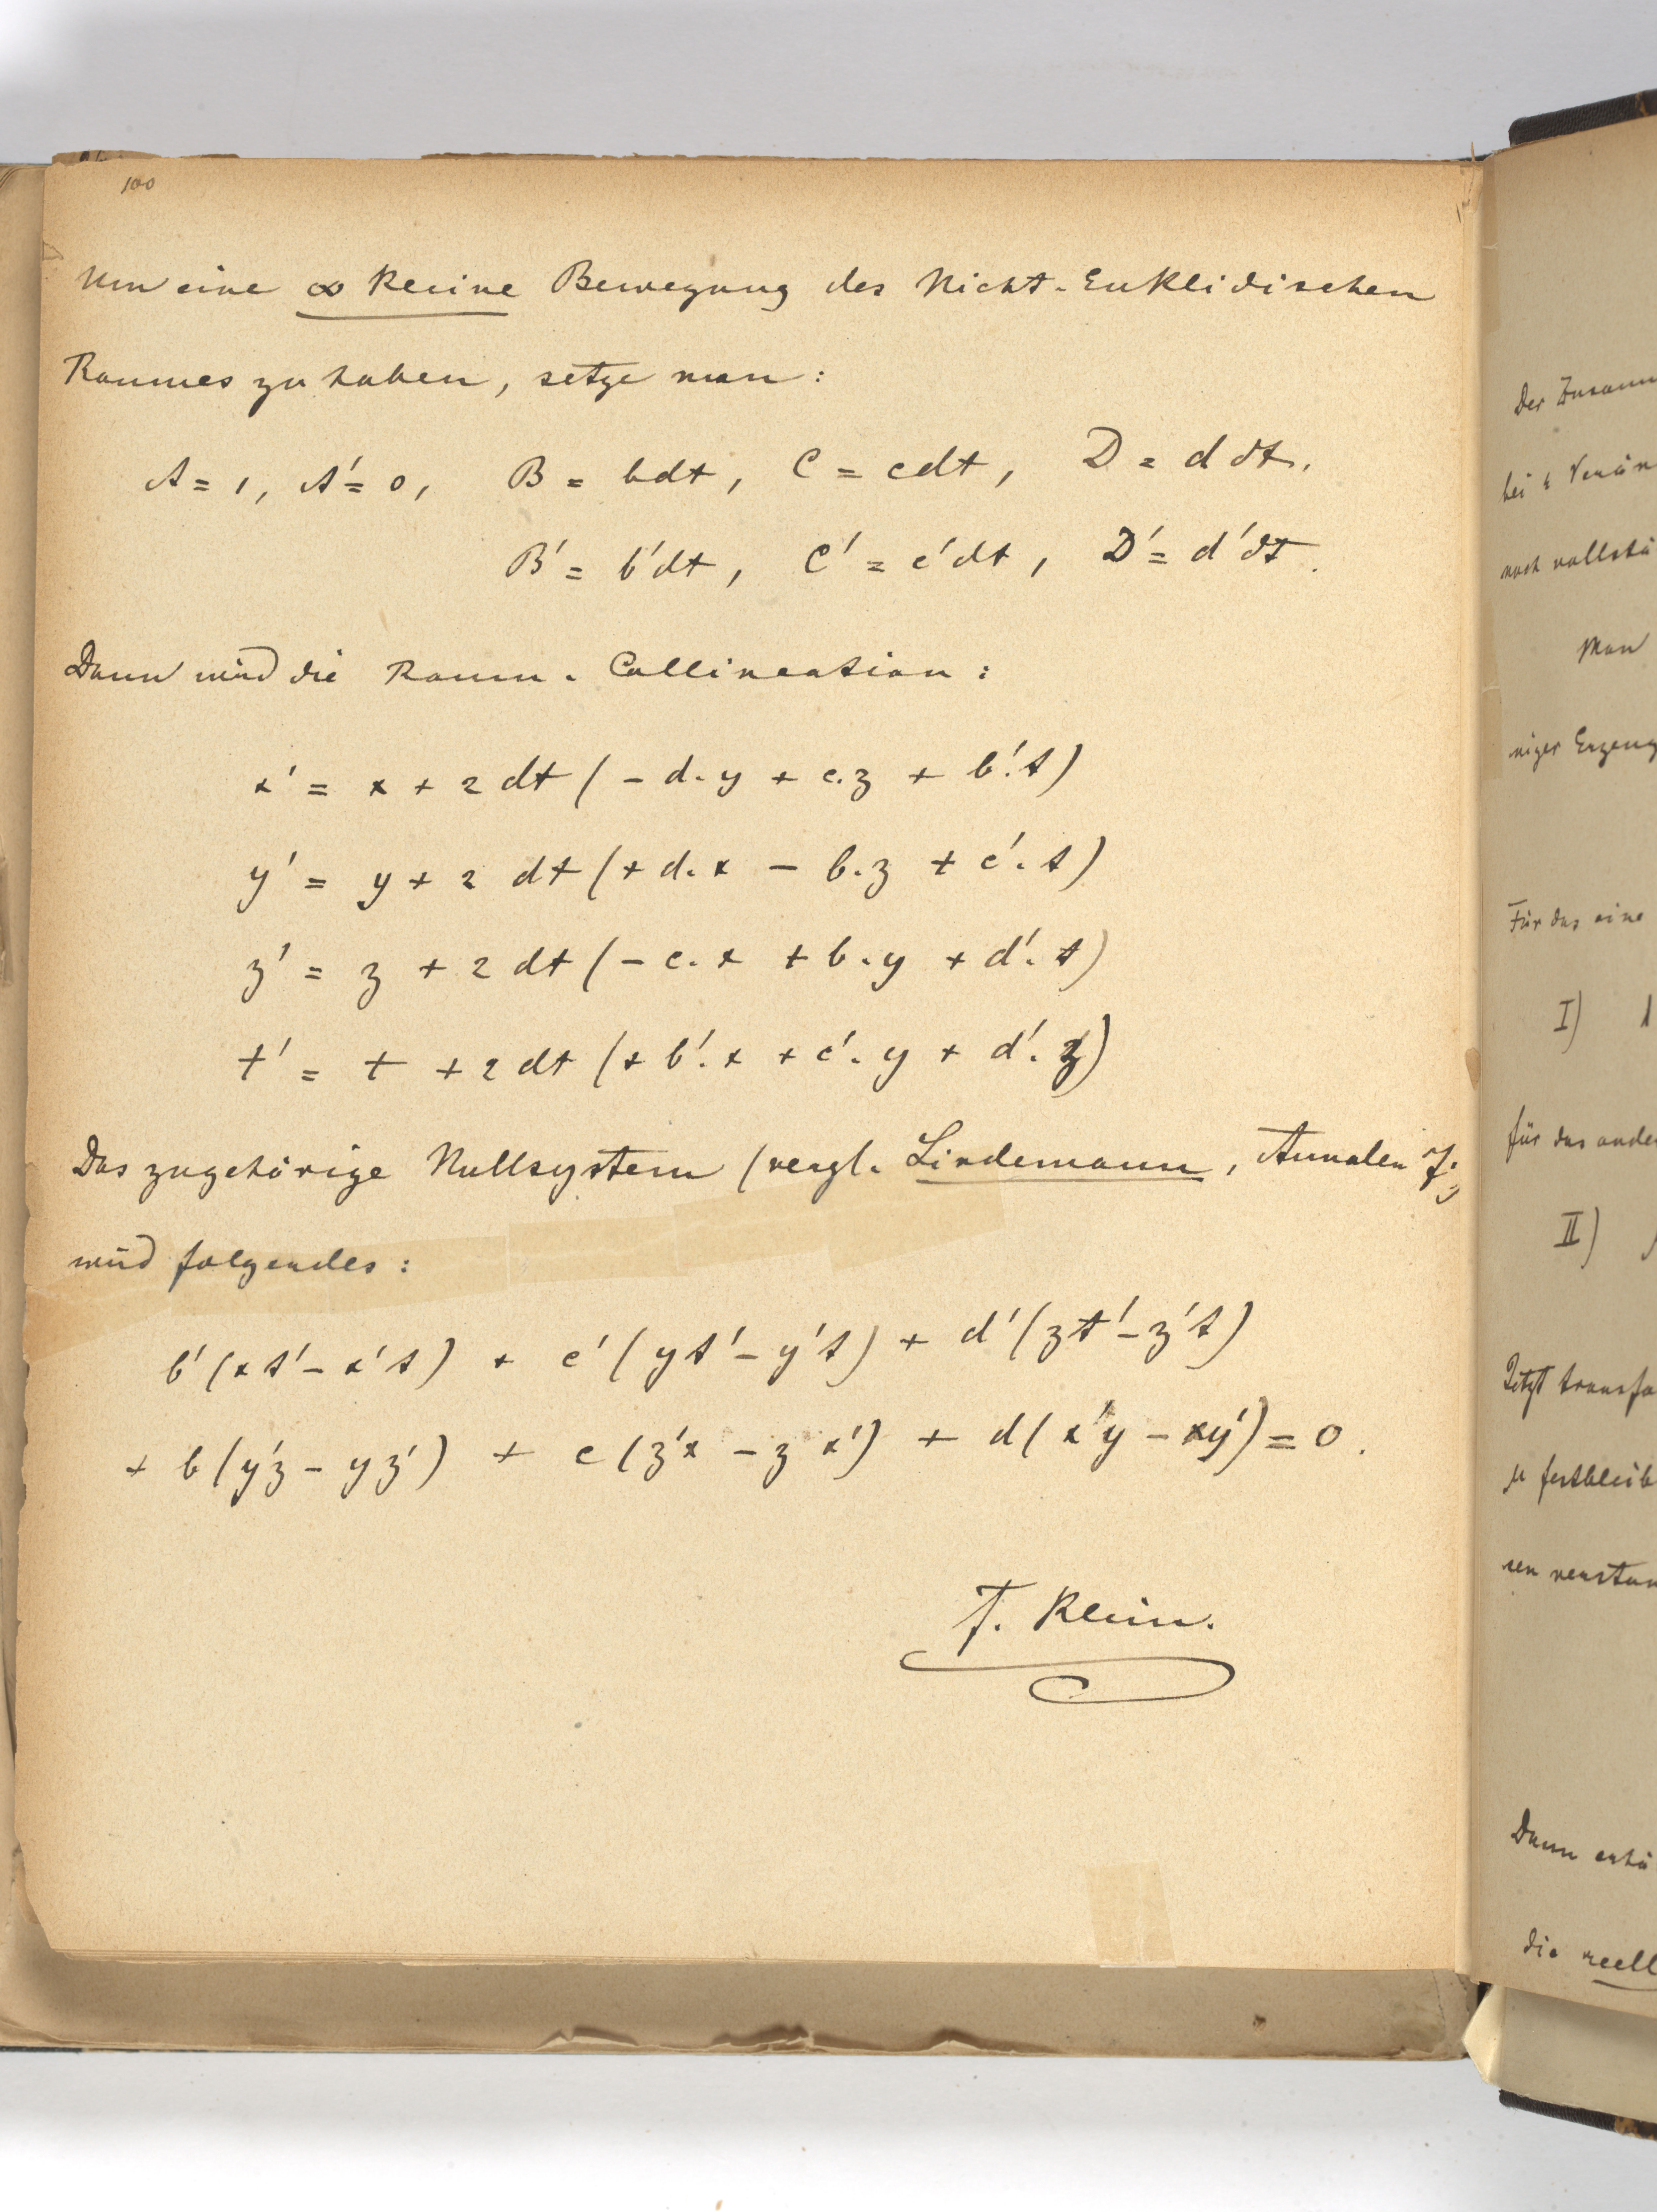 100
Um eine ∞ kleine Bewegung des Nicht-Euklidischen
Raumes zu haben, setze man:
A = 1, A' = 0, B = bdt, C = cdt, D = d dt.
B' = b'dt, C' = c'dt, D' = d'dt.
Dann wird die Raum-Collineation:
x' = x + 2 dt (- d.y + c.z + b'.t)
y' = y + 2 dt (+ d.x - b.z + c'.t)
z' = z + 2 dt (- c.x + b.y + d'.t)
t' = t + 2 dt (+ b'.x + c'.y + d'.z)
Das zugehörige Nullsystem (vergl. Lindemann, Annalen 7)
wird folgendes:
b'(xt' - x't) + c'(yt' - y't) + d'(zt' - z't)
+ b(y'z - yz') + c(z'x - zx') + d(x'y - xy') = 0.
F. Klein.
Der
bei
noch
Man
niger
Für das eine
I)
für das
II)
Jetzt
µ
Dann
die